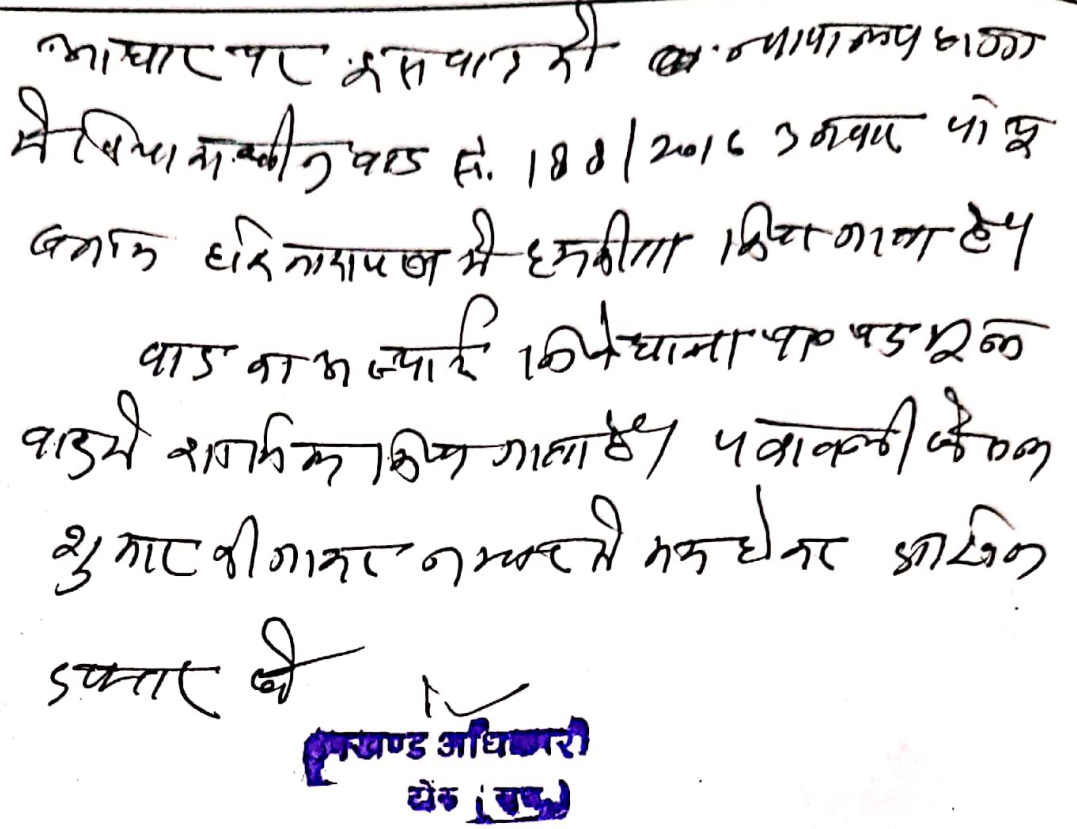 आधार पर इस वाद को न्यायालय हाजा
में विचाराधीन वाद सं. 188/2016 उनवान
बनाम हरिनारायण में किया जाता है।
वाद का किये जाने पर यह मूल
वाद में शामिल किया जाता है। पत्रावली फैसल
शुमार की जाकर नम्बर से कम होकर दाखिल
दफ्तर हो
उपखण्ड अधिकारी